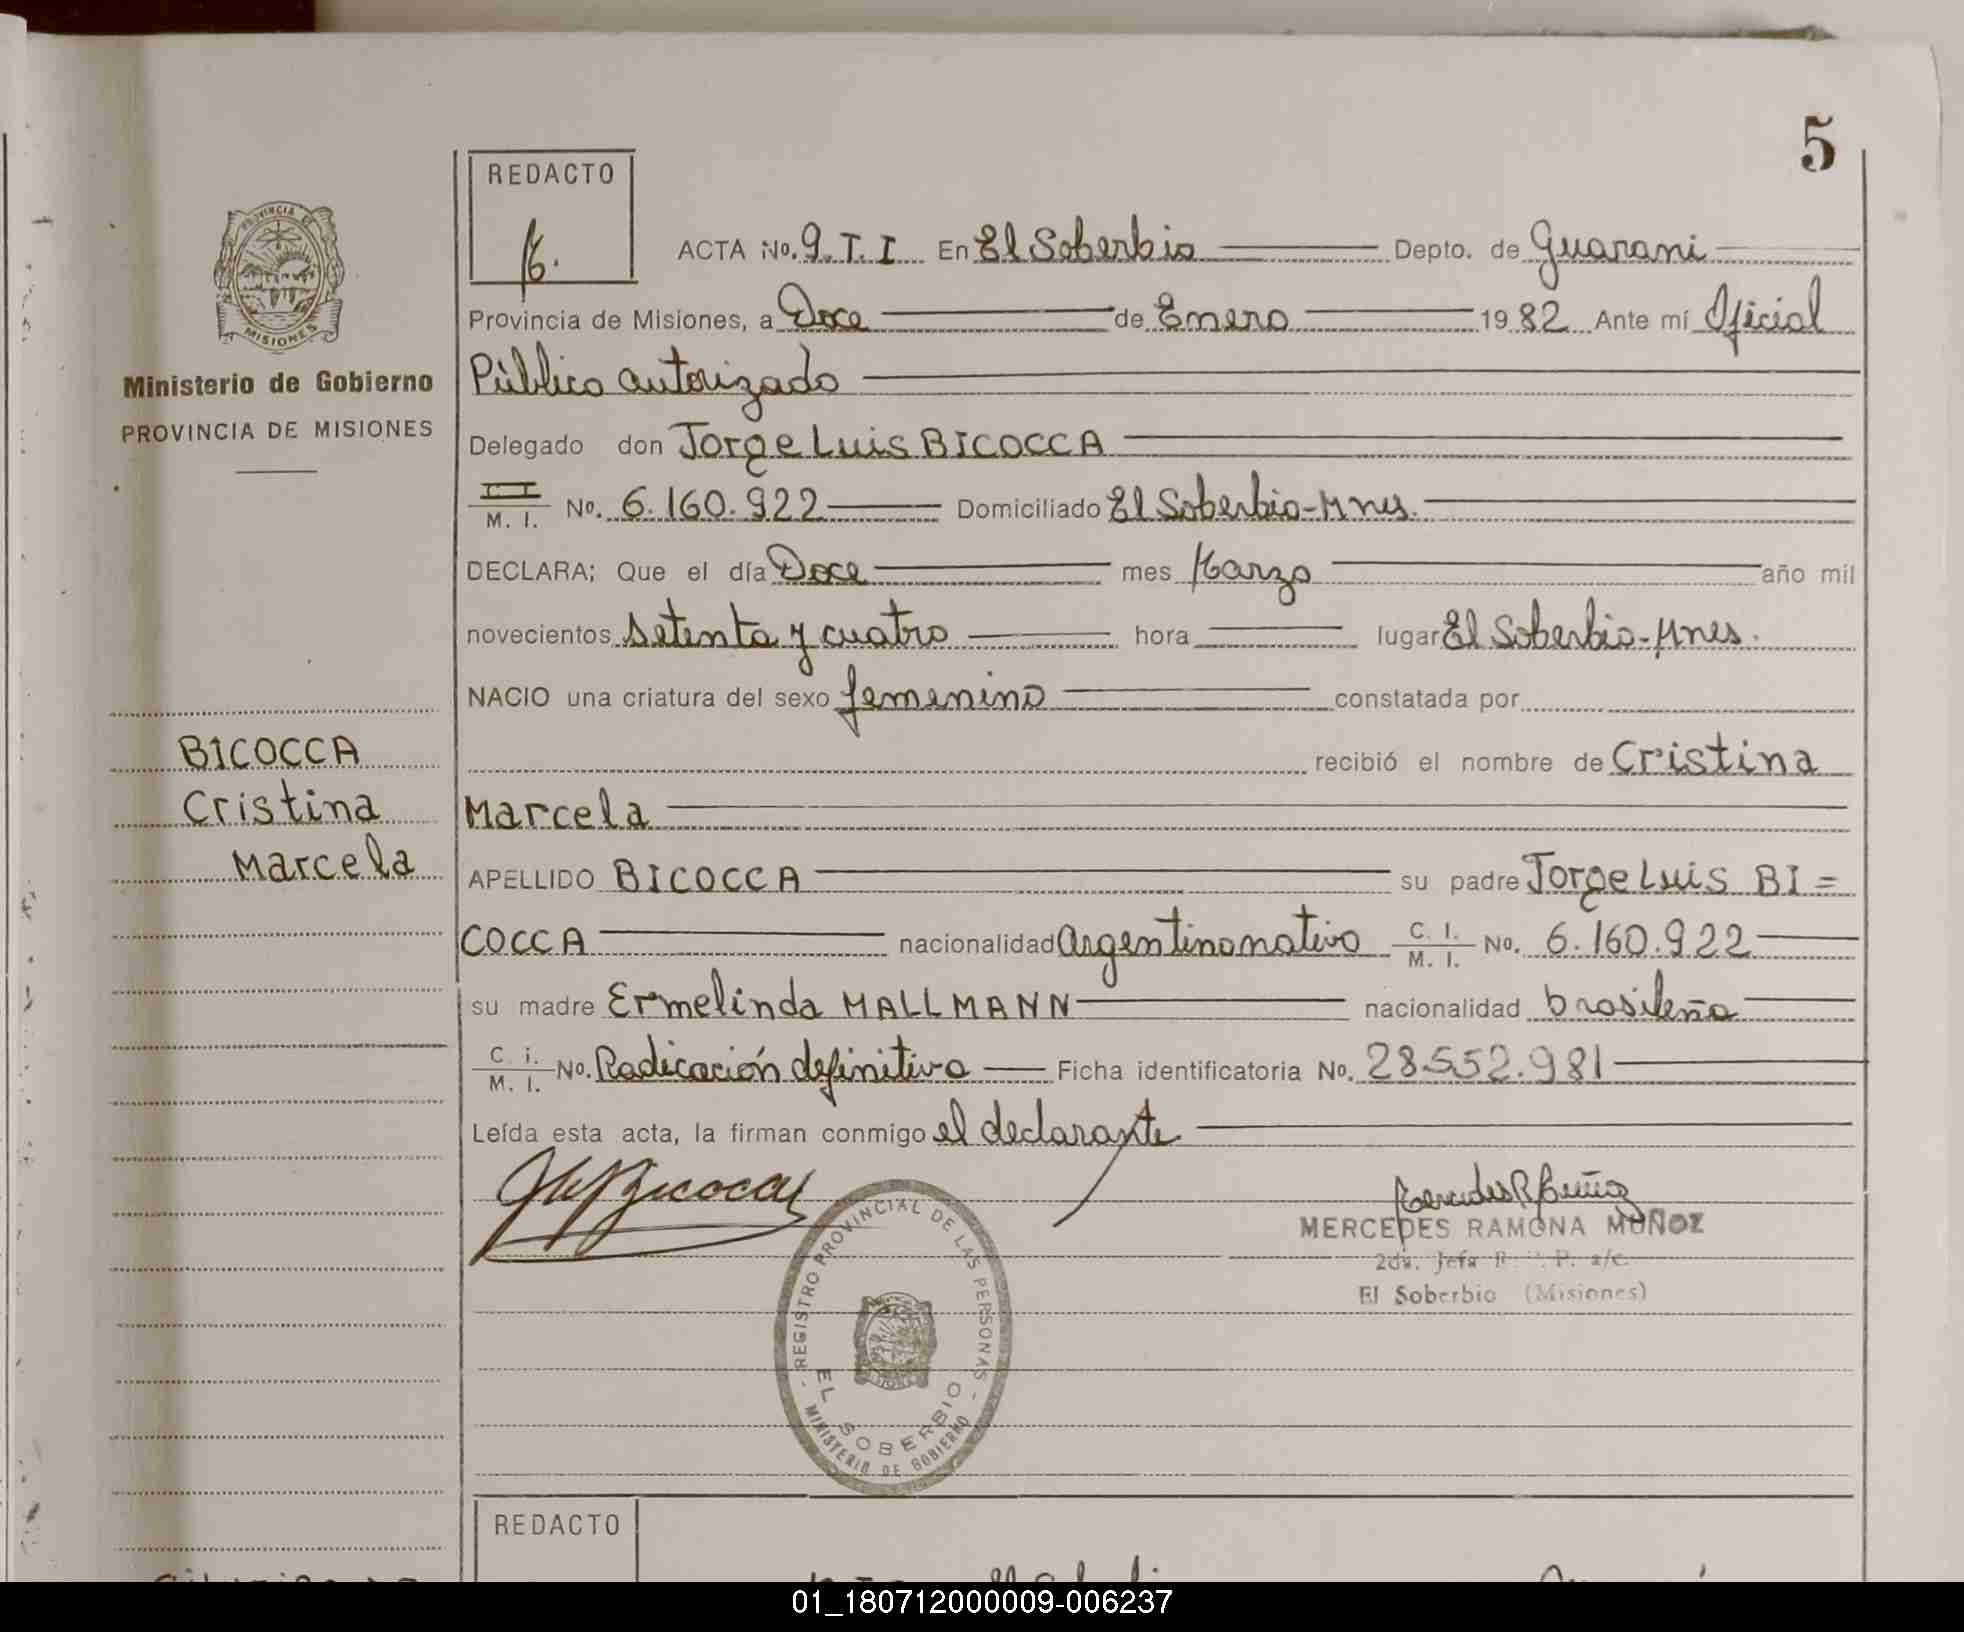 5
REDACTO
ACTA No. 9.T.I En El Soberbio Depto. de Guarani
Provincia de Misiones, a Doce de Enero 1982 Ante mí Oficial
Público autorizado
Delegado don Jorge Luis BICOCCA
C I
M. I. No. 6.160.922 Domiciliado El Soberbio-Mnes.
DECLARA; Que el día Doce mes Marzo año mil
novecientos setenta y cuatro hora lugar El Soberbio-Mnes.
NACIO una criatura del sexo femenino constatada por
recibió el nombre de Cristina
Marcela
APELLIDO BICOCCA su padre Jorge Luis BI=
COCCA nacionalidad Argentino nativo C. I. M. I. No. 6.160.922
su madre Ermelinda MALLMANN nacionalidad brasileña
C. i. M. I. No. Radicación definitiva Ficha identificatoria No. 28.552.981
Leída esta acta, la firman conmigo el declarante
Bicocca
Mercedes R Muñoz
MERCEDES RAMONA MUÑOZ
2da. Jefa P. a/c.
El Soberbio (Misiones)
- REGISTRO PROVINCIAL DE LAS PERSONAS -
EL SOBERBIO
MINISTERIO DE GOBIERNO
PROVINCIA DE
MISIONES
Ministerio de Gobierno
PROVINCIA DE MISIONES
BICOCCA
Cristina
Marcela
REDACTO
01_180712000009-006237